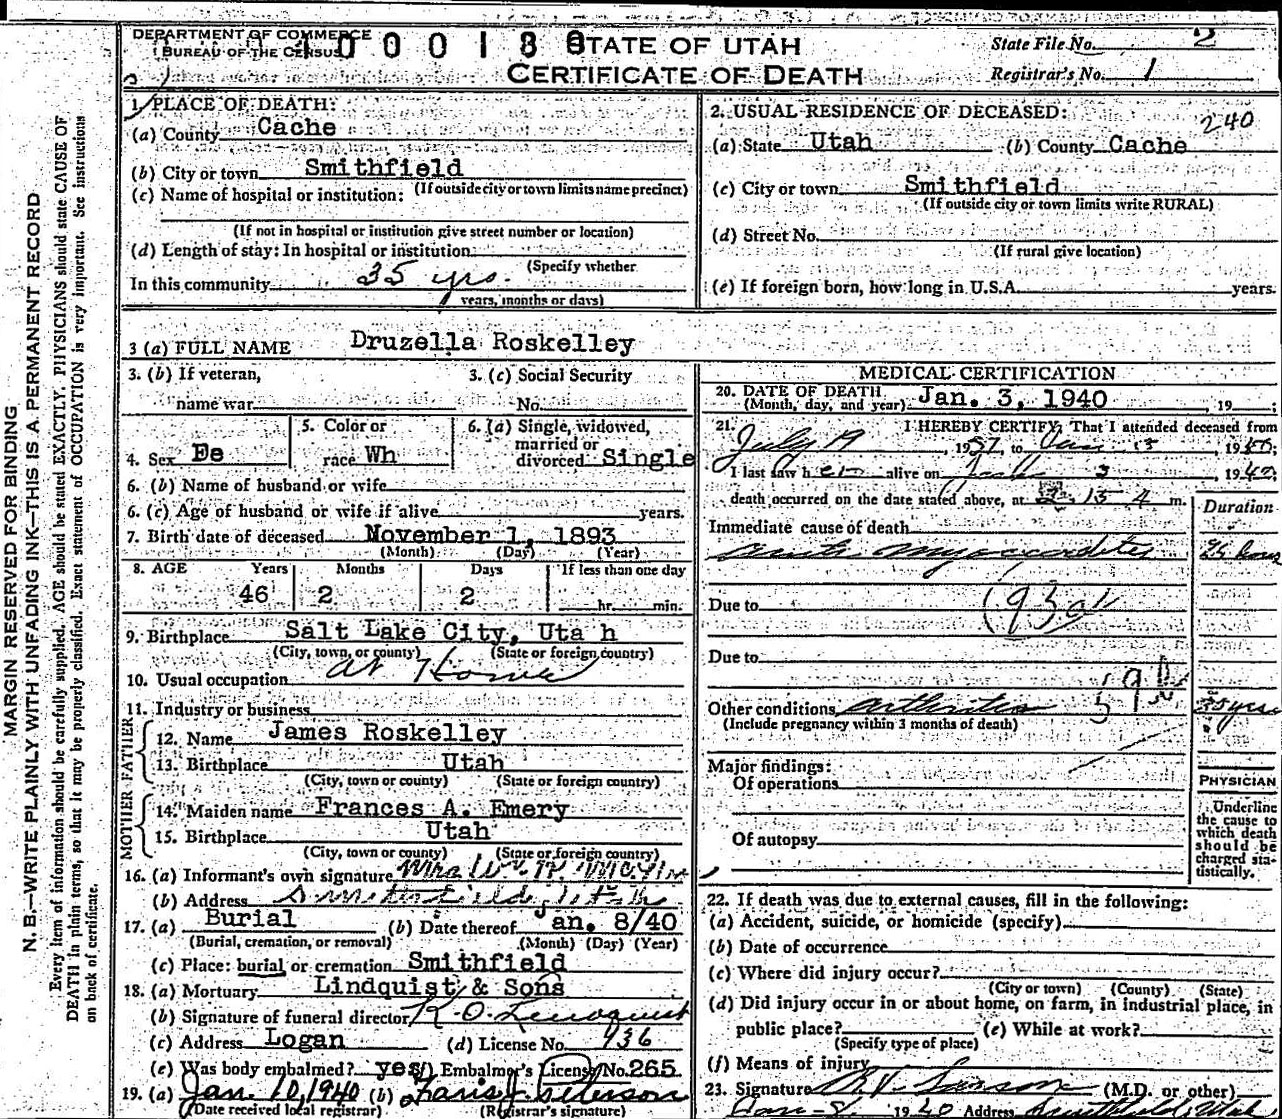 DEPARTMENT OF COMMERCE
BUREAU OF THE CENSUS
STATE OF UTAH
CERTIFICATE OF DEATH
State File No. 2
Registrar's No. 1
1. PLACE OF DEATH:
(a) County Cache
(b) City or town Smithfield
(If outside city or town limits name precinct)
(c) Name of hospital or institution:
(If not in hospital or institution give street number or location)
(d) Length of stay: In hospital or institution
(Specify whether
In this community 35 yrs.
years, months or days)
2. USUAL RESIDENCE OF DECEASED:
240
(a) State Utah (b) County Cache
(c) City or town Smithfield
(If outside city or town limits write RURAL)
(d) Street No.
(If rural give location)
(e) If foreign born, how long in U.S.A. years.
3 (a) FULL NAME Druzella Roskelley
3. (b) If veteran,
name war
3. (c) Social Security
No.
4. Sex Fe
5. Color or
race Wh
6. (a) Single, widowed,
married or
divorced Single
6. (b) Name of husband or wife
6. (c) Age of husband or wife if alive years.
7. Birth date of deceased November 1, 1893
(Month) (Day) (Year)
8. AGE Years Months Days If less than one day
46 2 2 hr. min.
9. Birthplace Salt Lake City, Uta h
(City, town, or county) (State or foreign country)
10. Usual occupation at Home
11. Industry or business
FATHER
12. Name James Roskelley
13. Birthplace Utah
(City, town or county) (State or foreign country)
MOTHER
14. Maiden name Frances A. Emery
15. Birthplace Utah
(City, town or county) (State or foreign country)
16. (a) Informant's own signature Mrs. Wm. R.
(b) Address Smithfield, Utah
17. (a) Burial (b) Date thereof Jan. 8/40
(Burial, cremation, or removal) (Month) (Day) (Year)
(c) Place: burial or cremation Smithfield
18. (a) Mortuary Lindquist & Sons
(b) Signature of funeral director K. O. Lindquist
(c) Address Logan (d) License No. 936
(e) Was body embalmed? yes (f) Embalmer's License No. 265
19. (a) Jan. 10, 1940 (b) Peterson
(Date received local registrar) (Registrar's signature)
MEDICAL CERTIFICATION
20. DATE OF DEATH
(Month, day, and year) Jan. 3, 1940 , 19 ;
21. I HEREBY CERTIFY, That I attended deceased from
July 19, 1937, to Jan 3, 1940;
I last saw her alive on Jan 3, 1940,
death occurred on the date stated above, at m.
Duration
Immediate cause of death
acute myocarditis
Due to
(93a
Due to
59
Other conditions Arthritis 35 yrs
(Include pregnancy within 3 months of death)
Major findings:
Of operations
Of autopsy
PHYSICIAN
Underline
the cause to
which death
should be
charged sta-
tistically.
22. If death was due to external causes, fill in the following:
(a) Accident, suicide, or homicide (specify)
(b) Date of occurrence
(c) Where did injury occur?
(City or town) (County) (State)
(d) Did injury occur in or about home, on farm, in industrial place, in
public place? (e) While at work?
(Specify type of place)
(f) Means of injury
23. Signature Larson (M.D. or other)
Jan- 8, 1940 Address Smithfield Utah
MARGIN RESERVED FOR BINDING
N. B.—WRITE PLAINLY WITH UNFADING INK—THIS IS A PERMANENT RECORD
Every item of information should be carefully supplied. AGE should be stated EXACTLY. PHYSICIANS should state CAUSE OF
DEATH in plain terms, so that it may be properly classified. Exact statement of OCCUPATION is very important. See instructions
on back of certificate.